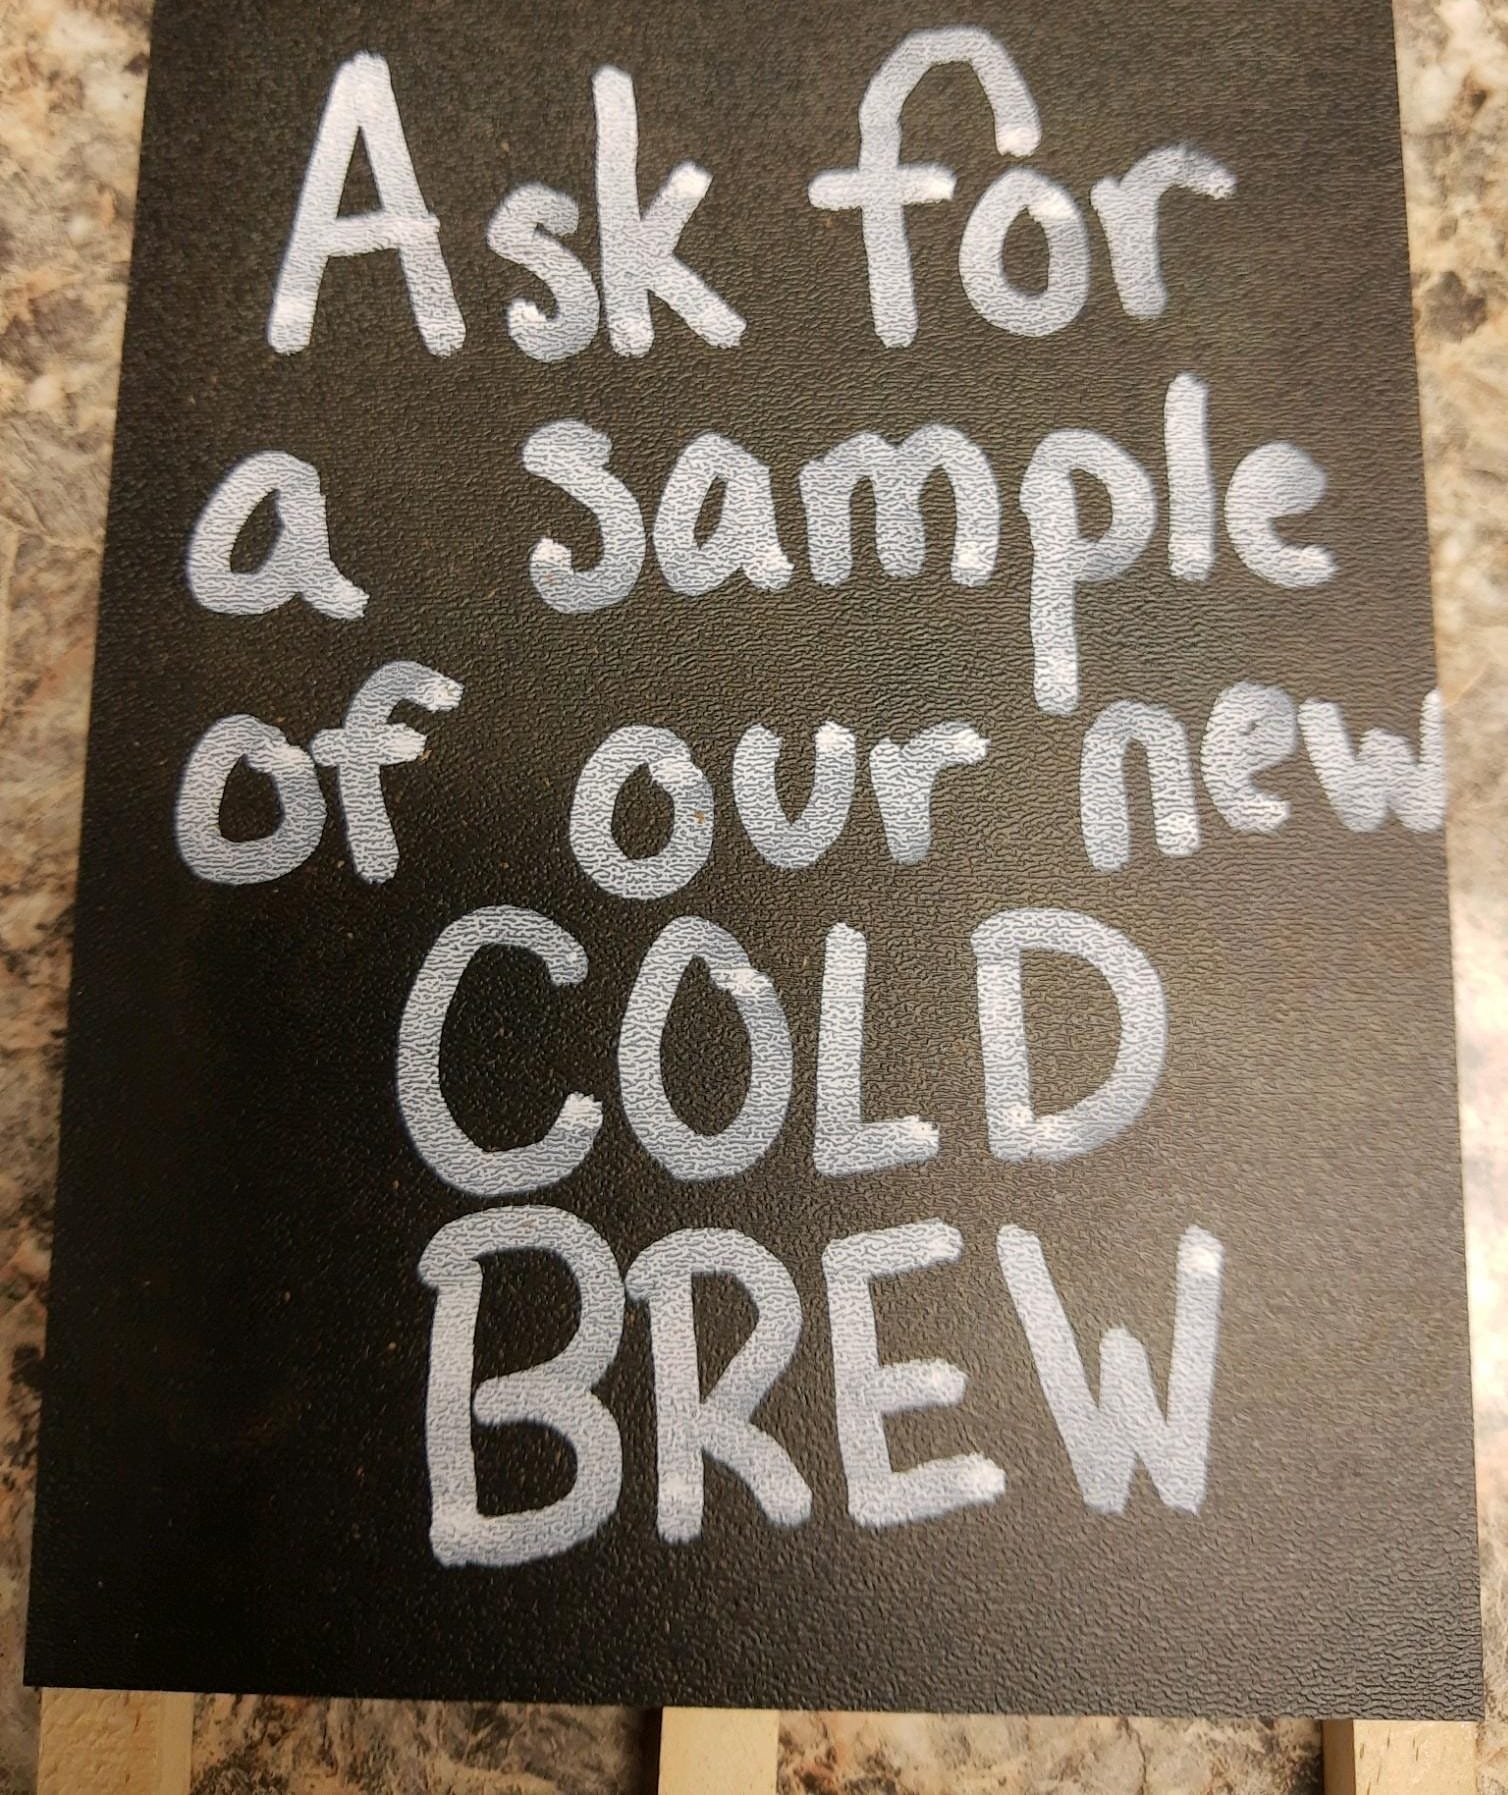 Ask for
a sample
of our new
COLD
BREW